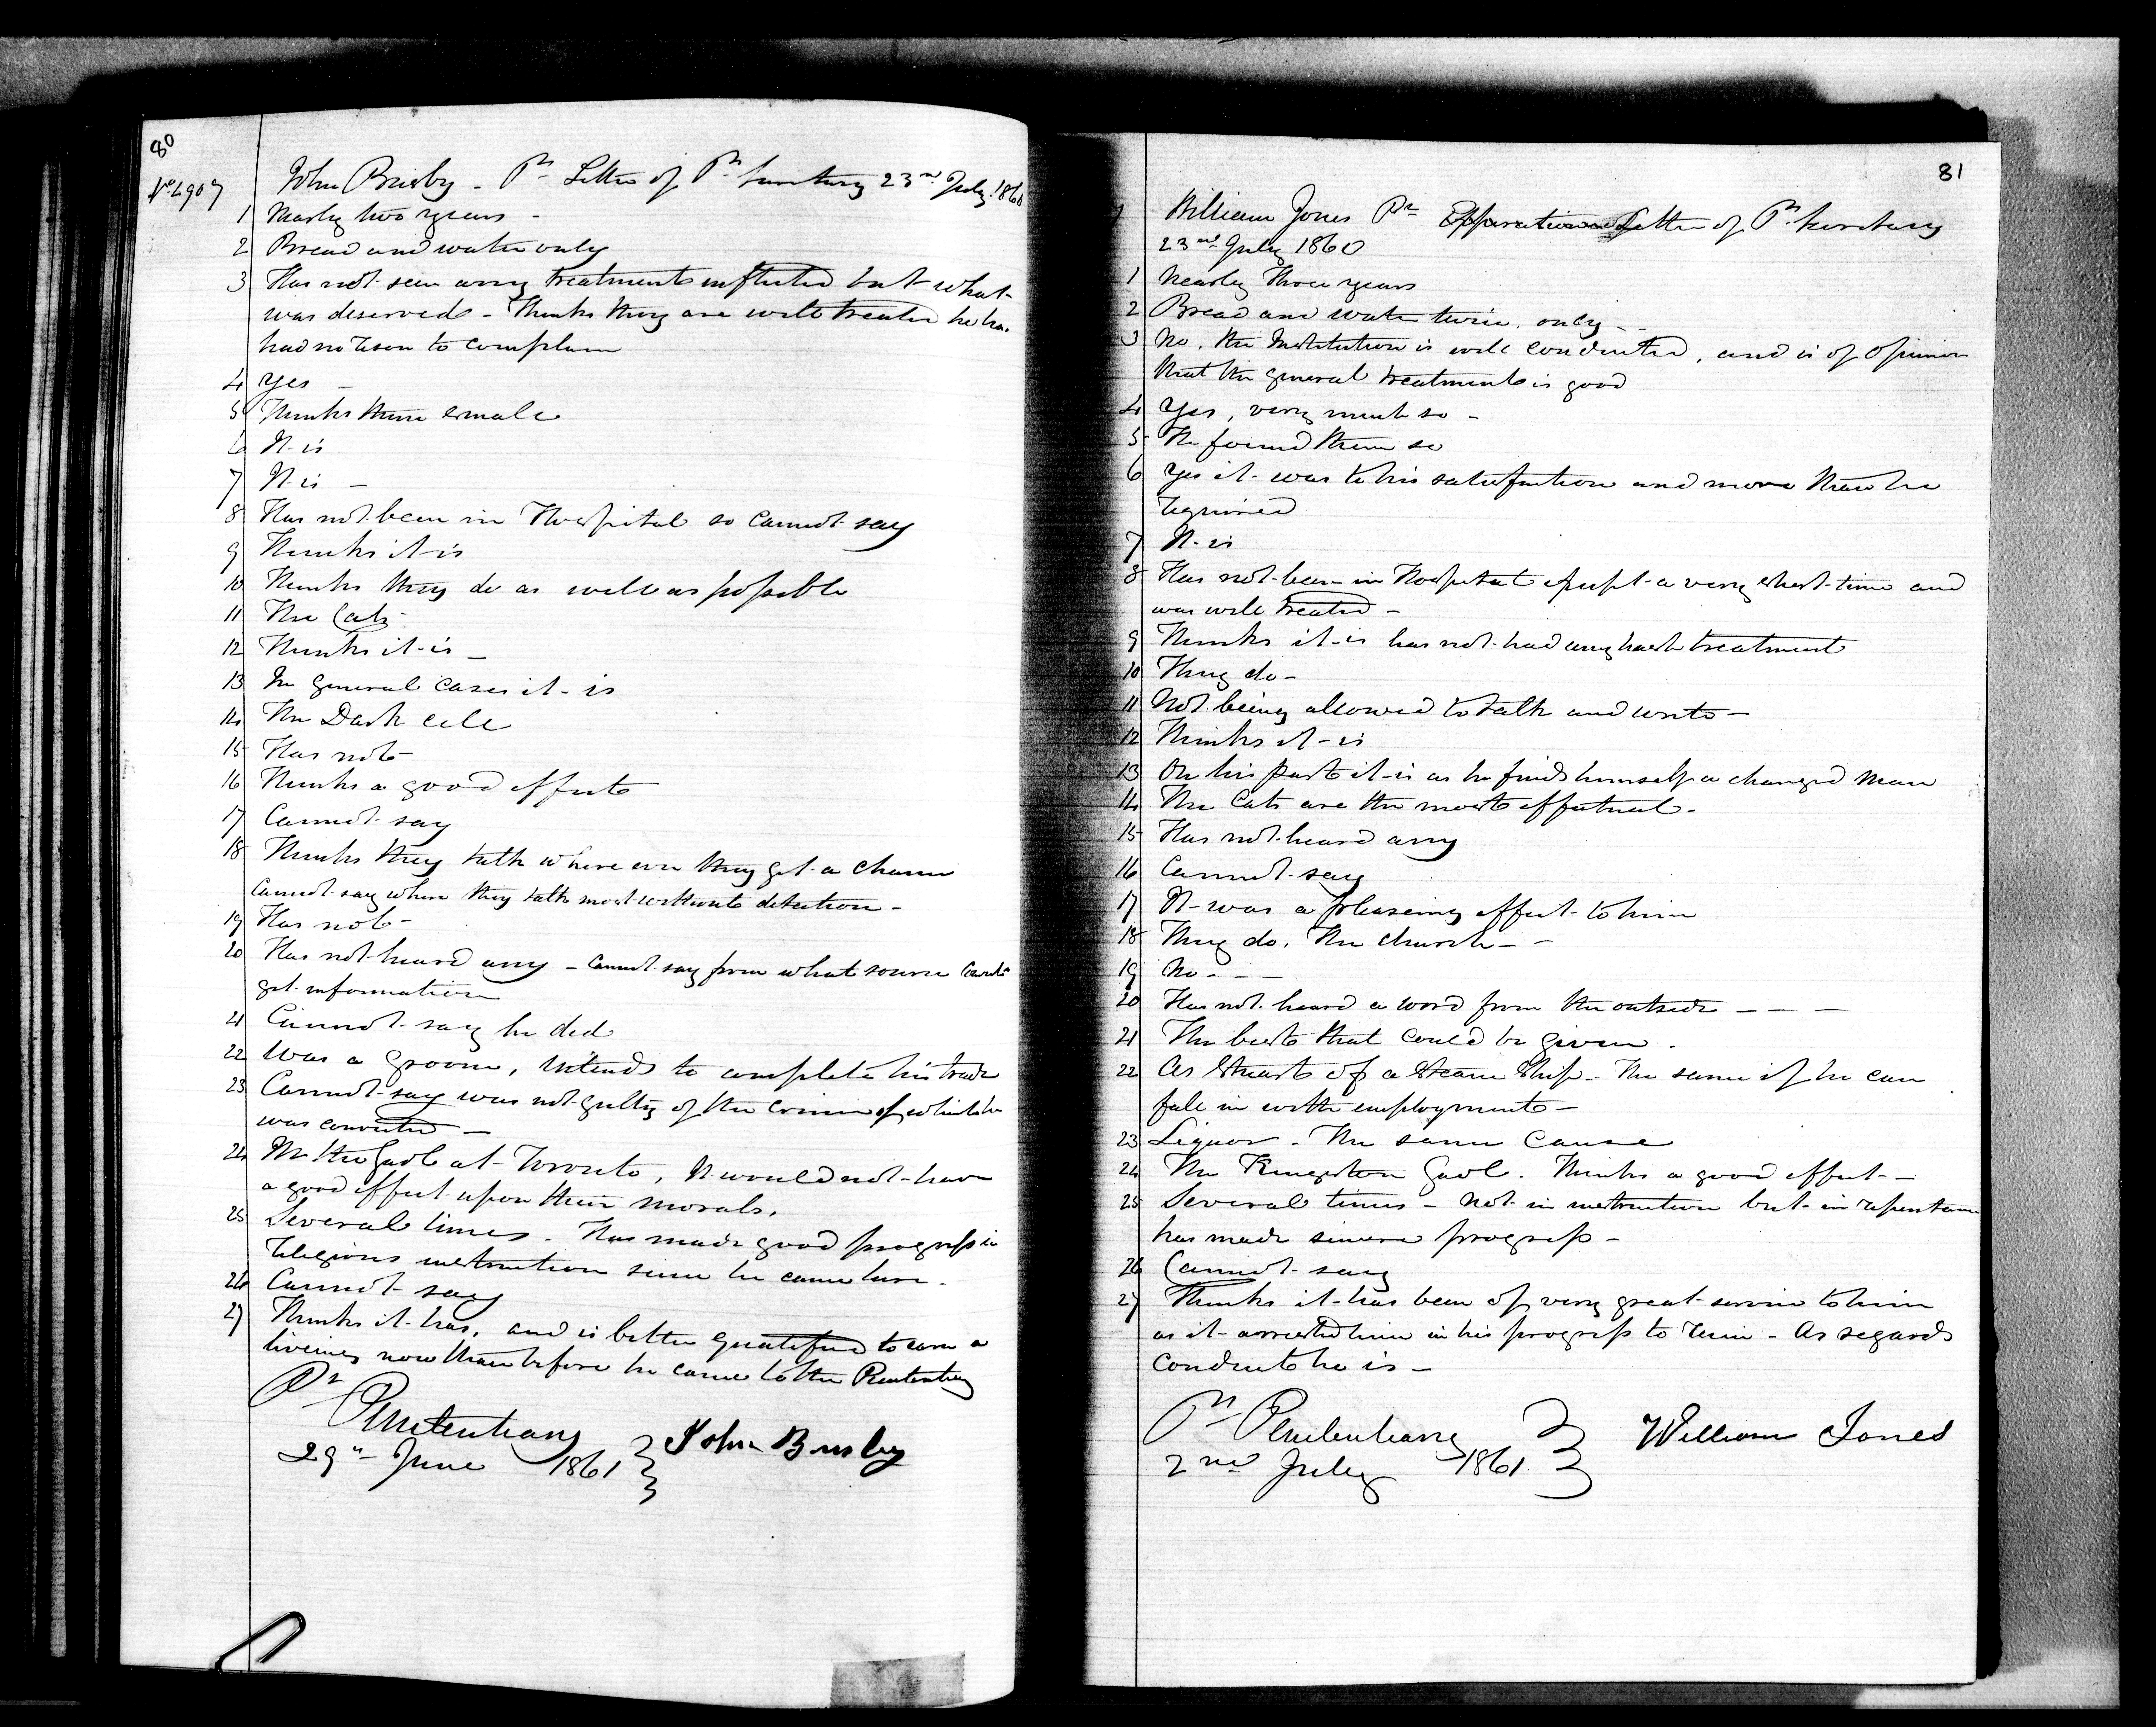 80
No. 4907 John Brisby - Pr Letter of Pr Secretary 23rd July 1860
1 Nearly two years -
2 Bread and water only
3 Has not seen any treatment inflicted but what
was deserved - Thinks they are well treated he has
had no reason to complain
4 Yes -
5 Thinks them small
6 It is
7 It is -
8 Has not been in Hospital so cannot say
9 Thinks it is
10 Thinks they do as well as possible
11 The Cats
12 Thinks it is -
13 In general cases it is
14 The Dark cell
15 Has not
16 Thinks a good effect
17 Cannot say
18 Thinks they talk where ever they get a chance
Cannot say where they talk most without detection -
19 Has not
20 Has not heard any - cannot say from what source
get information
21 Cannot say he did
22 Was a Groom, intends to complete his trade
23 Cannot say was not guilty of the crime of which he
was convicted -
24 In the Gaol at Toronto, It would not have
a good effect upon their morals.
25 Several times. Has made good progress in
religious instruction since he came here -
26 Cannot say
27 Thinks it has, and is better qualified to earn a
living now than before he came to the Penitentiary
Pr Penitentiary
29th June 1861 John Brisby
81
William Jones Pr Letter of Pr Secretary
23rd July 1860
1 Nearly Three years
2 Bread and water twice, only - -
3 No, the Institution is well conducted, and is of opinion
that the general treatment is good
4 Yes, very much so -
5 He found them so
6 Yes it was to his satisfaction and more than he
required
7 It is
8 Has not been in Hospital except a very short time and
was well treated -
9 Thinks it is has not had any harsh treatment
10 They do -
11 Not being allowed to talk and write -
12 Thinks it is
13 On his part it is as he finds himself a changed man
14 The Cats are the most effectual -
15 Has not heard any
16 Cannot say
17 It was a pleaseing effect to him
18 They do. The church - -
19 No - - -
20 Has not heard a word from the outside - - -
21 The best that could be given.
22 As Stuart of a Steam Ship - The same if he can
fall in with employment -
23 Liquor - The same Cause
24 The Kingston Gaol. Thinks a good effect -
25 Several times - Not in instruction but in repentance
has made sincere progress -
26 Cannot say
27 Thinks it has been of very great service to him
as it arrested him in his progress to ruin - As regards
conduct he is -
Pr Penitentiary
2nd July 1861 William Jones